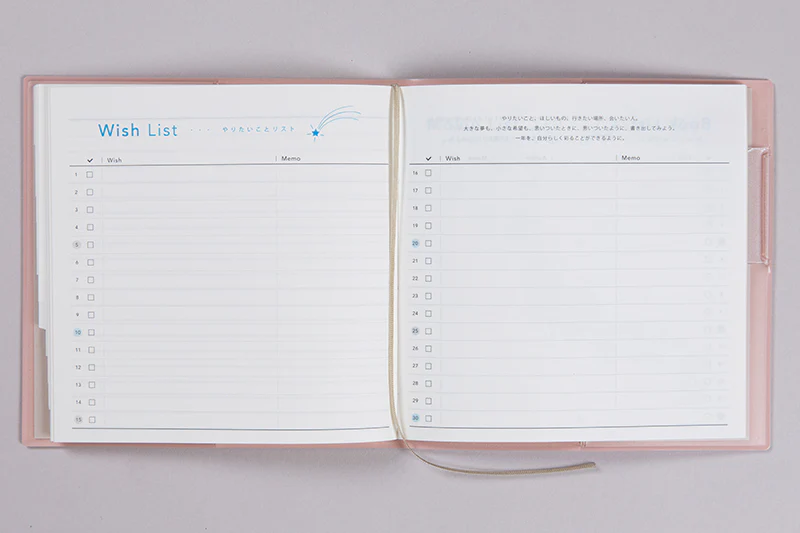 Wish List ・・・ やりたいことリスト
✓ Wish Memo
1
2
3
4
5
6
7
8
9
10
11
12
13
14
15
やりたいこと。ほしいもの。行きたい場所。会いたい人。
大きな夢も、小さな希望も、思いついたときに、思いついたように、書き出してみよう。
一年を、自分らしく彩ることができるように。
✓ Wish Memo
16
17
18
19
20
21
22
23
24
25
26
27
28
29
30